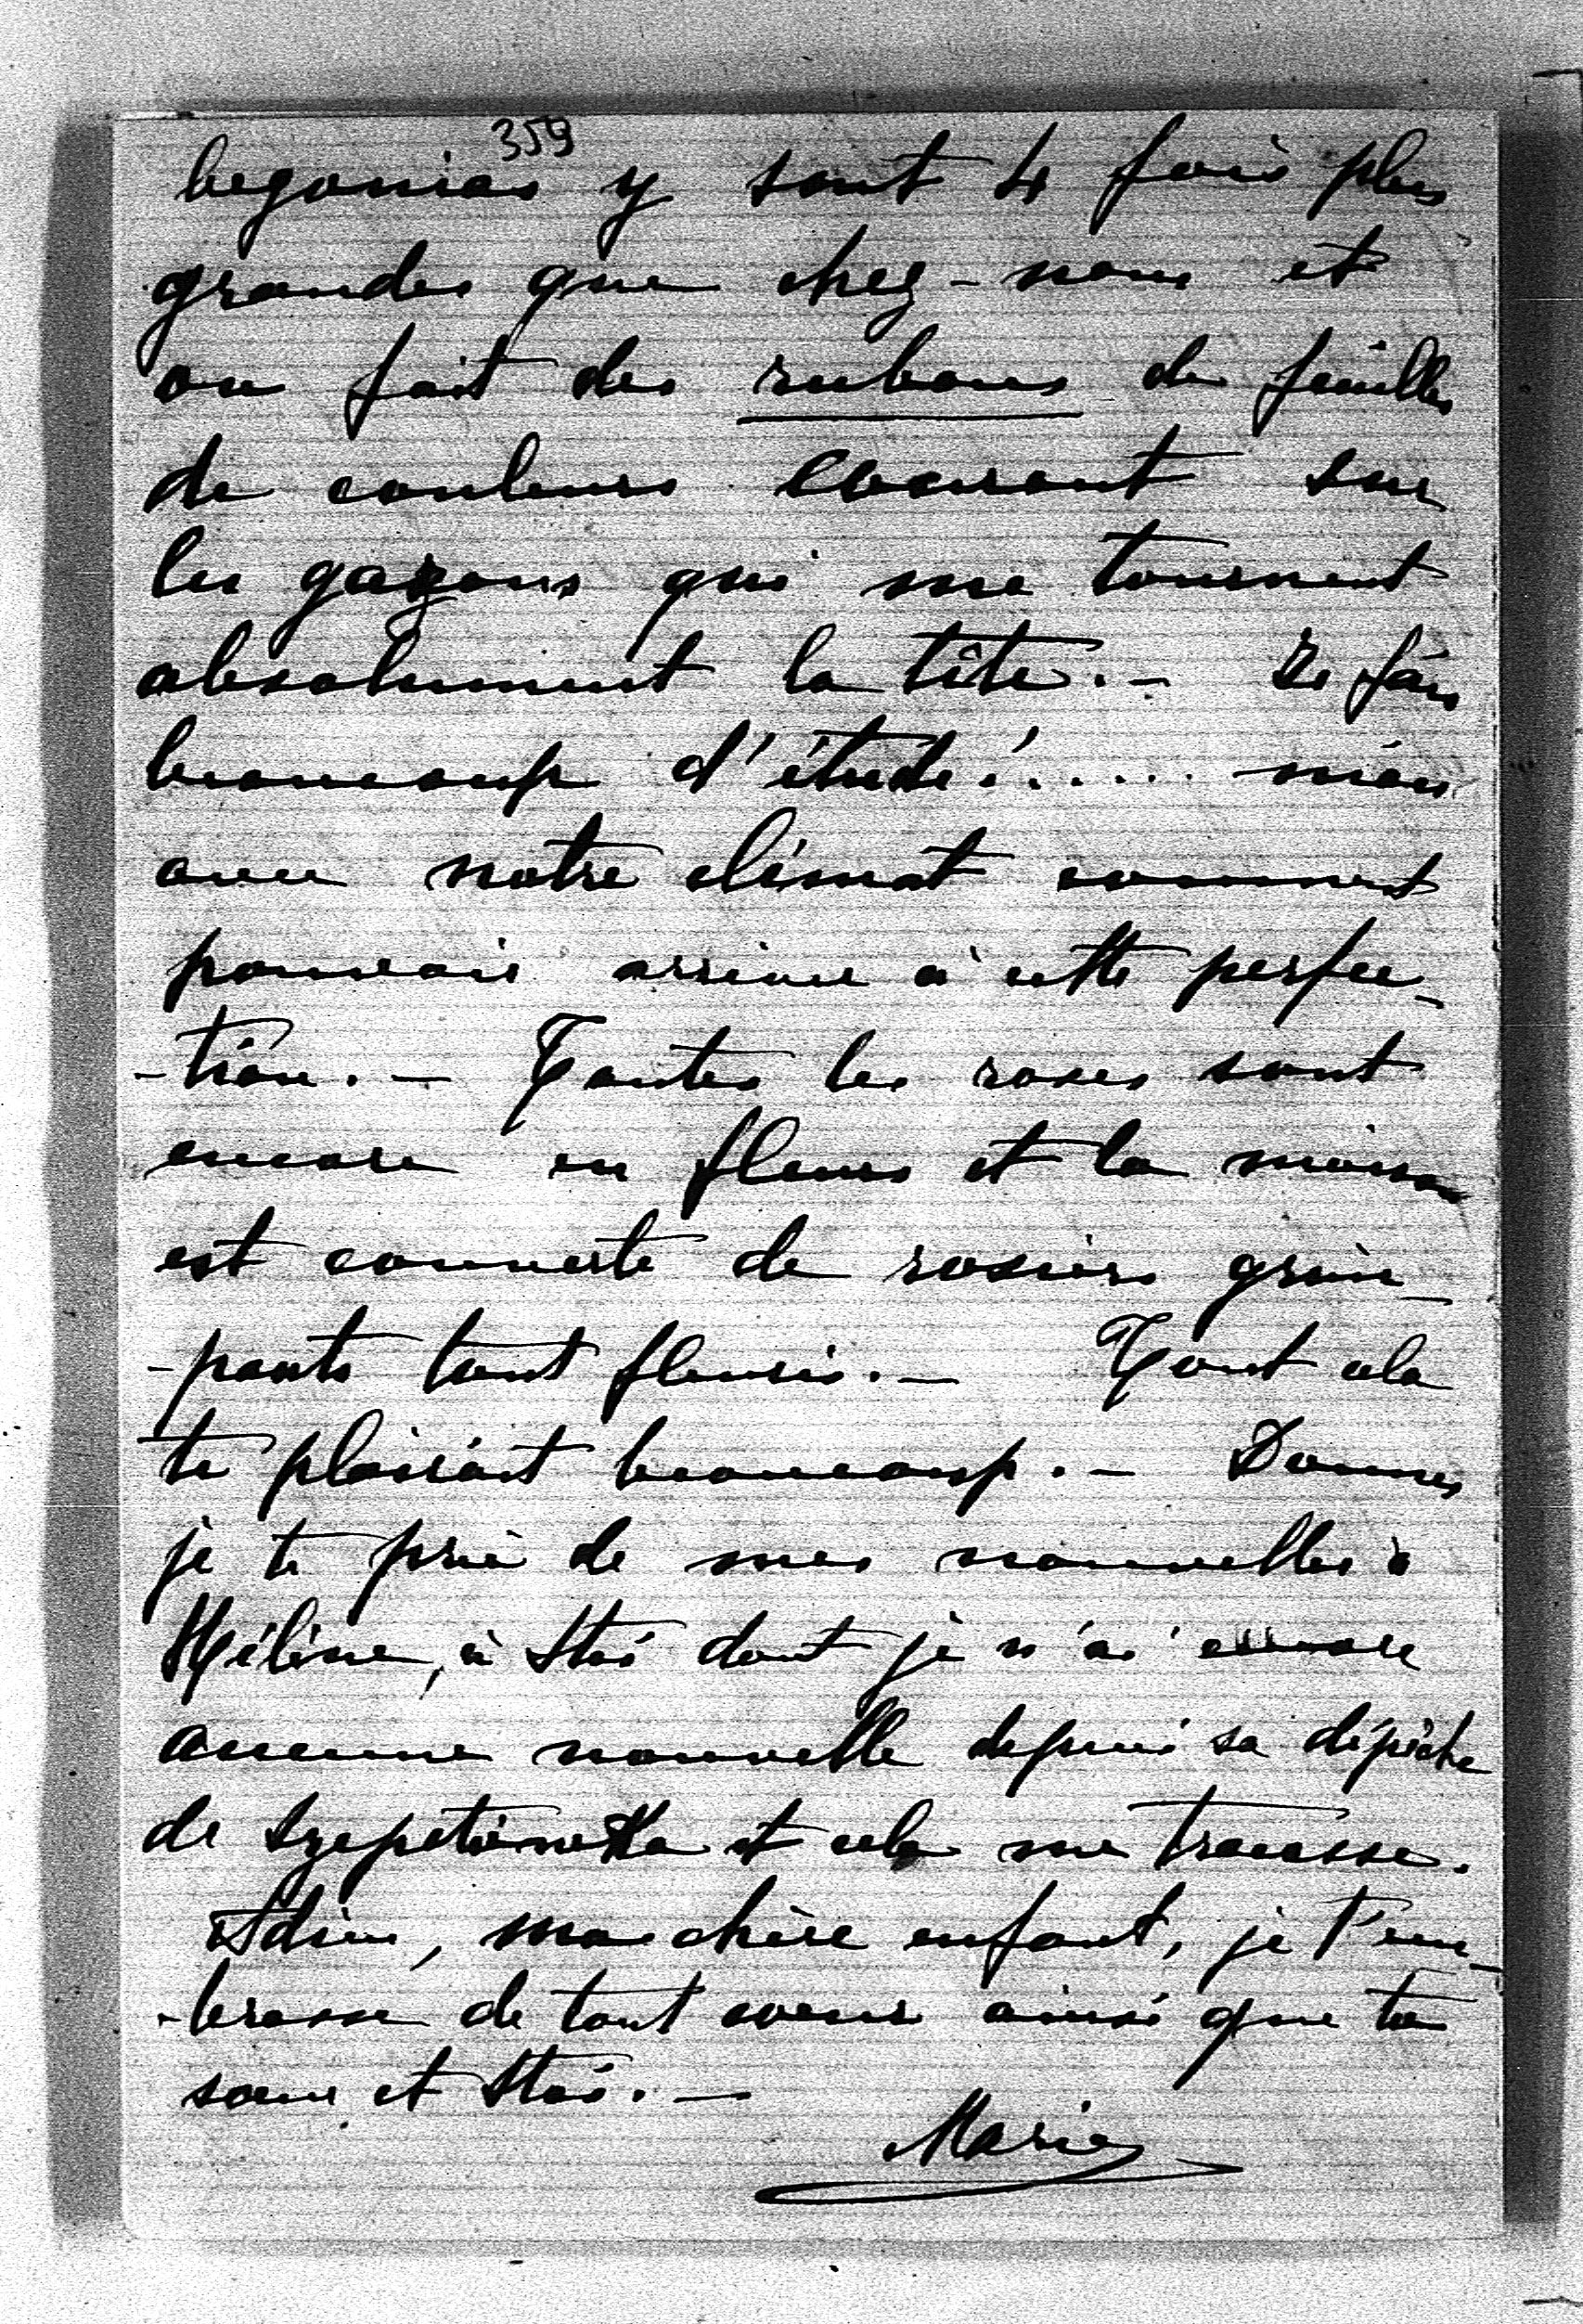 359
begonias y sont 4 fois plus
grandes que chez-nous et
on fait des rubans de feuilles
de couleurs courant sur
les gazons qui me tournent
absolument la tête. - Je fais
beaucoup d'étude!..... mais
avec notre climat comment
pouvoir arriver à cette perfec-
-tion. - Toutes les roses sont
encore en fleurs et la maison
est couverte de rosiers grim-
-pants tout fleuris. - Tout cela
te plairait beaucoup. - Donnes
je te prie de mes nouvelles à
Hélène, à Stas dont je n'ai encore
aucune nouvelle depuis sa dépêche
de Szepetówka et cela me tracasse.
Adieu, ma chère enfant, je t'em-
-brasse de tout coeur ainsi que ta
soeur et Stas. -
Marie